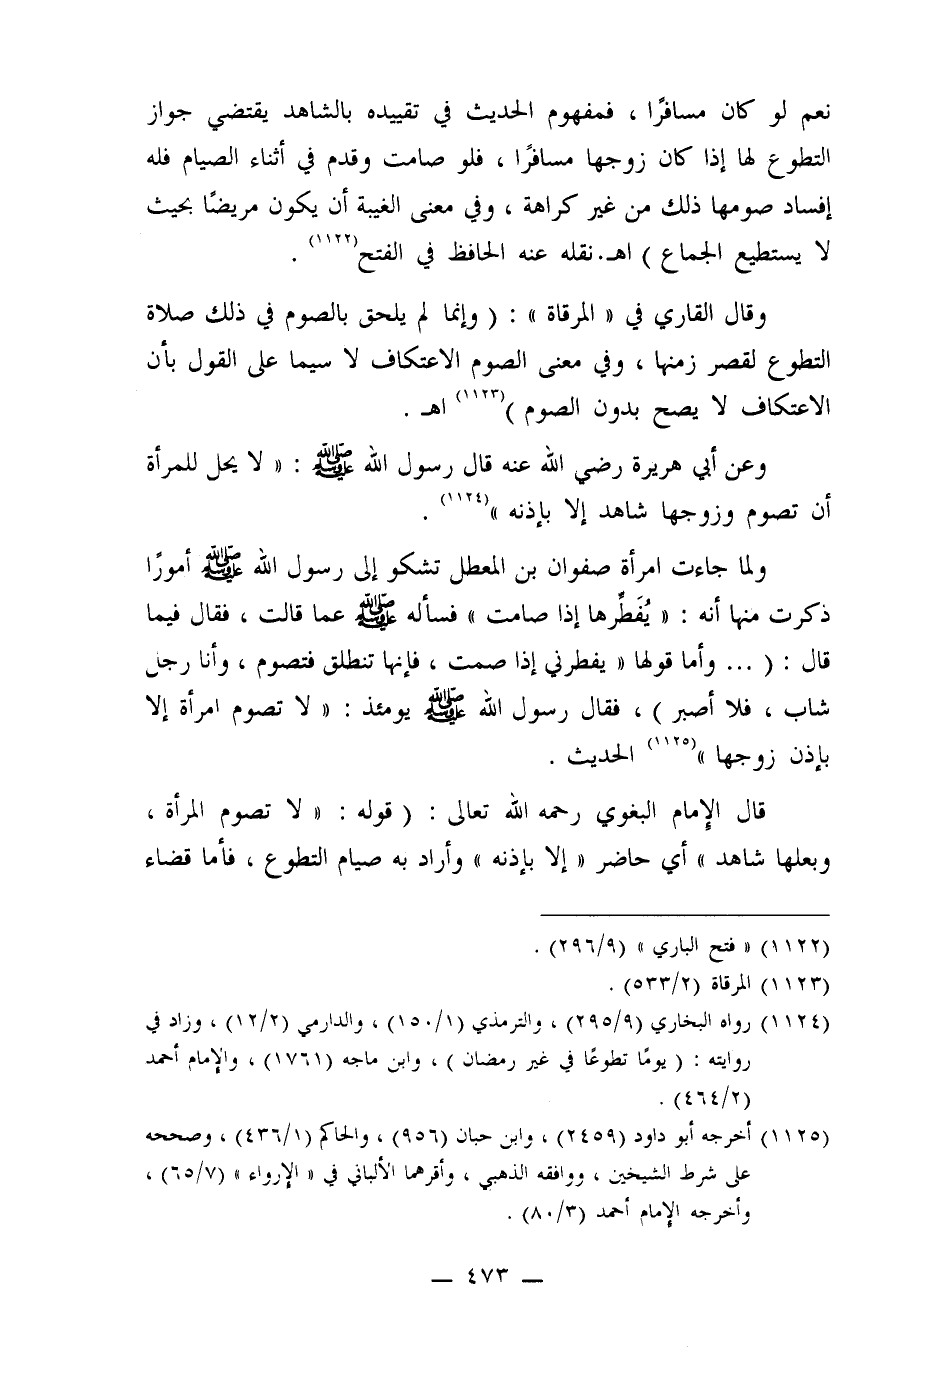 نعم لو كان مسافرًا ، فمفهوم الحديث في تقييده بالشاهد يقتضي جواز
التطوع لها إذا كان زوجها مسافرًا ، فلو صامت وقدم في أثناء الصيام فله
إفساد صومها ذلك من غير كراهة ، وفي معنى الغيبة أن يكون مريضًا بحيث
لا يستطيع الجماع ) اهـ.نقله عنه الحافظ في الفتح(١١٢٢) .
وقال القاري في « المرقاة » : ( وإنما لم يلحق بالصوم في ذلك صلاة
التطوع لقصر زمنها ، وفي معنى الصوم الاعتكاف لا سيما على القول بأن
الاعتكاف لا يصح بدون الصوم )(١١٢٣) اهـ .
وعن أبي هريرة رضي الله عنه قال رسول الله ﷺ : « لا يحل للمرأة
أن تصوم وزوجها شاهد إلا بإذنه »(١١٢٤) .
ولما جاءت امرأة صفوان بن المعطل تشكو إلى رسول الله ﷺ أمورًا
ذكرت منها أنه : « يُفَطِّرها إذا صامت » فسأله ﷺ عما قالت ، فقال فيما
قال : ( ... وأما قولها « يفطرني إذا صمت ، فإنها تنطلق فتصوم ، وأنا رجل
شاب ، فلا أصبر ) ، فقال رسول الله ﷺ يومئذ : « لا تصوم امرأة إلا
بإذن زوجها »(١١٢٥) الحديث .
قال الإمام البغوي رحمه الله تعالى : ( قوله : « لا تصوم المرأة ،
وبعلها شاهد » أي حاضر « إلا بإذنه » وأراد به صيام التطوع ، فأما قضاء
(١١٢٢) « فتح الباري » (٢٩٦/٩) .
(١١٢٣) المرقاة (٥٣٣/٢) .
(١١٢٤) رواه البخاري (٢٩٥/٩) ، والترمذي (١٥٠/١) ، والدارمي (١٢/٢) ، وزاد في
روايته : ( يومًا تطوعًا في غير رمضان ) ، وابن ماجه (١٧٦١) ، والإمام أحمد
(٤٦٤/٢) .
(١١٢٥) أخرجه أبو داود (٢٤٥٩) ، وابن حبان (٩٥٦) ، والحاكم (٤٣٦/١) ، وصححه
على شرط الشيخين ، ووافقه الذهبي ، وأقرهما الألباني في « الإرواء » (٦٥/٧) ،
وأخرجه الإمام أحمد (٨٠/٣) .
— ٤٧٣ —